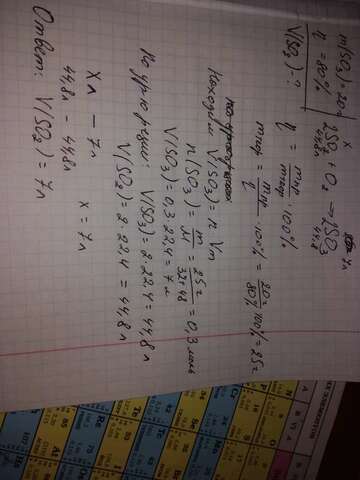 m(SO₃) = 20г
η = 80%
V(SO₂) - ?
x 7л
2SO₂ + O₂ → 2SO₃
44,8л 44,8
η = mпр / mтеор · 100%
mтеор = mпр / η · 100% = 20г / 80% · 100% = 25г
Находим V(SO₃) = n · Vm
n(SO₃) = m / M = 25г / 32+48 = 0,3 моль
V(SO₃) = 0,3 · 22,4 = 7л
По ур-ю реакции: V(SO₃) = 2 · 22,4 = 44,8л
V(SO₂) = 2 · 22,4 = 44,8л
xл — 7л
44,8л — 44,8л x = 7л
Ответ: V(SO₂) = 7л